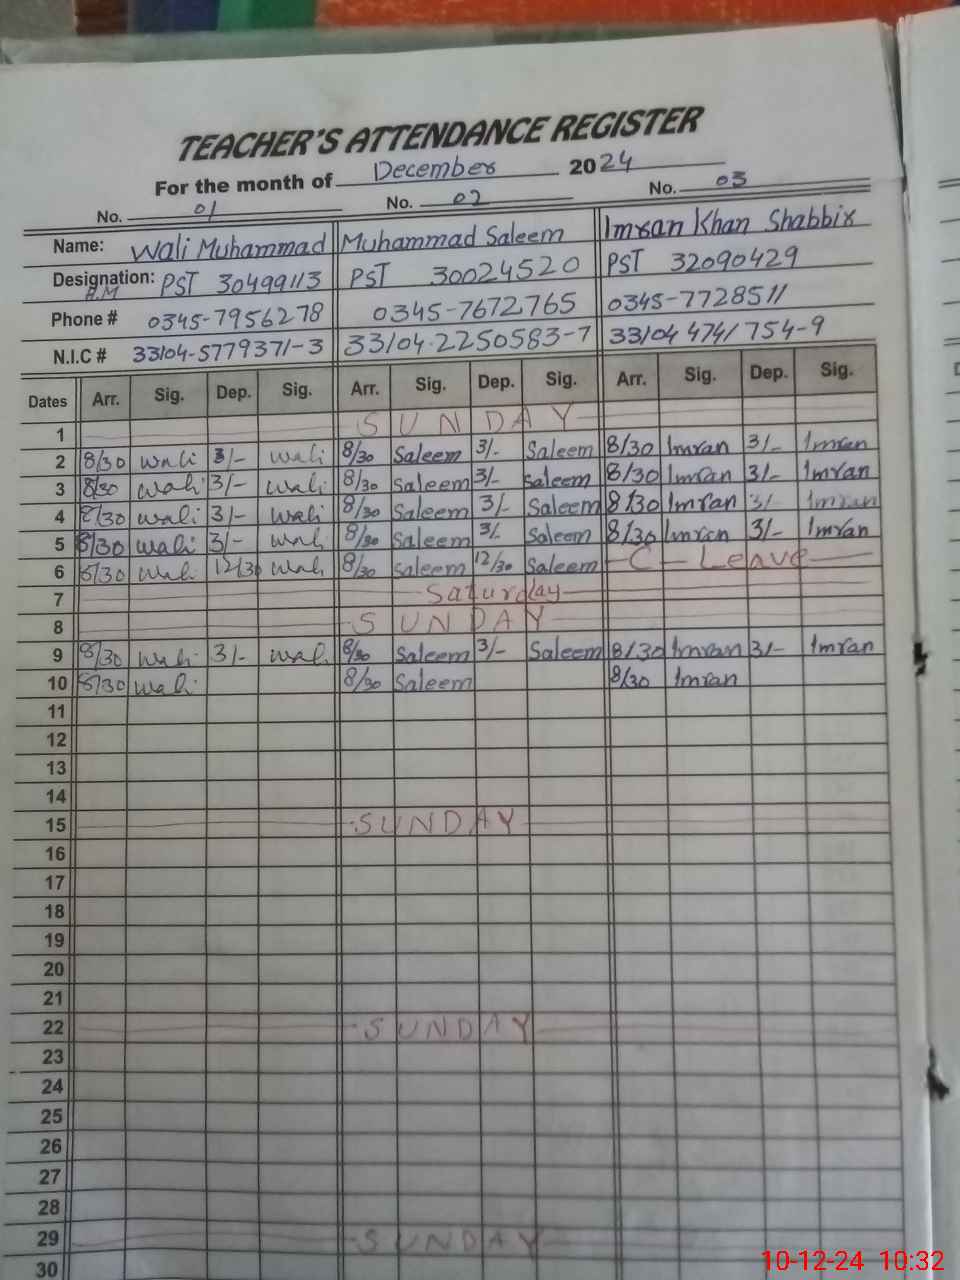 TEACHER'S ATTENDANCE REGISTER
For the month of December 2024
No. 01 No. 02 No. 03
Name: Wali Muhammad Muhammad Saleem Imran Khan Shabbir
Designation: PST 30499113 PST 30024520 PST 32090429
H.M
Phone # 0345-7956278 0345-7672765 0345-7728511
N.I.C # 33104-5779371-3 33104-2250583-7 33104 4741754-9
Dates Arr. Sig. Dep. Sig. Arr. Sig. Dep. Sig. Arr. Sig. Dep. Sig.
1 SUNDAY
2 8/30 wali 3/- wali 8/30 Saleem 3/- Saleem 8/30 Imran 3/- Imran
3 8/30 wali 3/- wali 8/30 Saleem 3/- Saleem 8/30 Imran 3/- Imran
4 8/30 wali 3/- wali 8/30 Saleem 3/- Saleem 8/30 Imran 3/- Imran
5 8/30 wali 3/- wali 8/30 Saleem 3/- Saleem 8/30 Imran 3/- Imran
6 8/30 wali 12/30 wali 8/30 Saleem 12/30 Saleem C - Leave
7 Saturday
8 SUNDAY
9 8/30 wali 3/- wali 8/30 Saleem 3/- Saleem 8/30 Imran 3/- Imran
10 8/30 wali 8/30 Saleem 8/30 Imran
11
12
13
14
15 SUNDAY
16
17
18
19
20
21
22 SUNDAY
23
24
25
26
27
28
29 SUNDAY
30
10-12-24 10:32